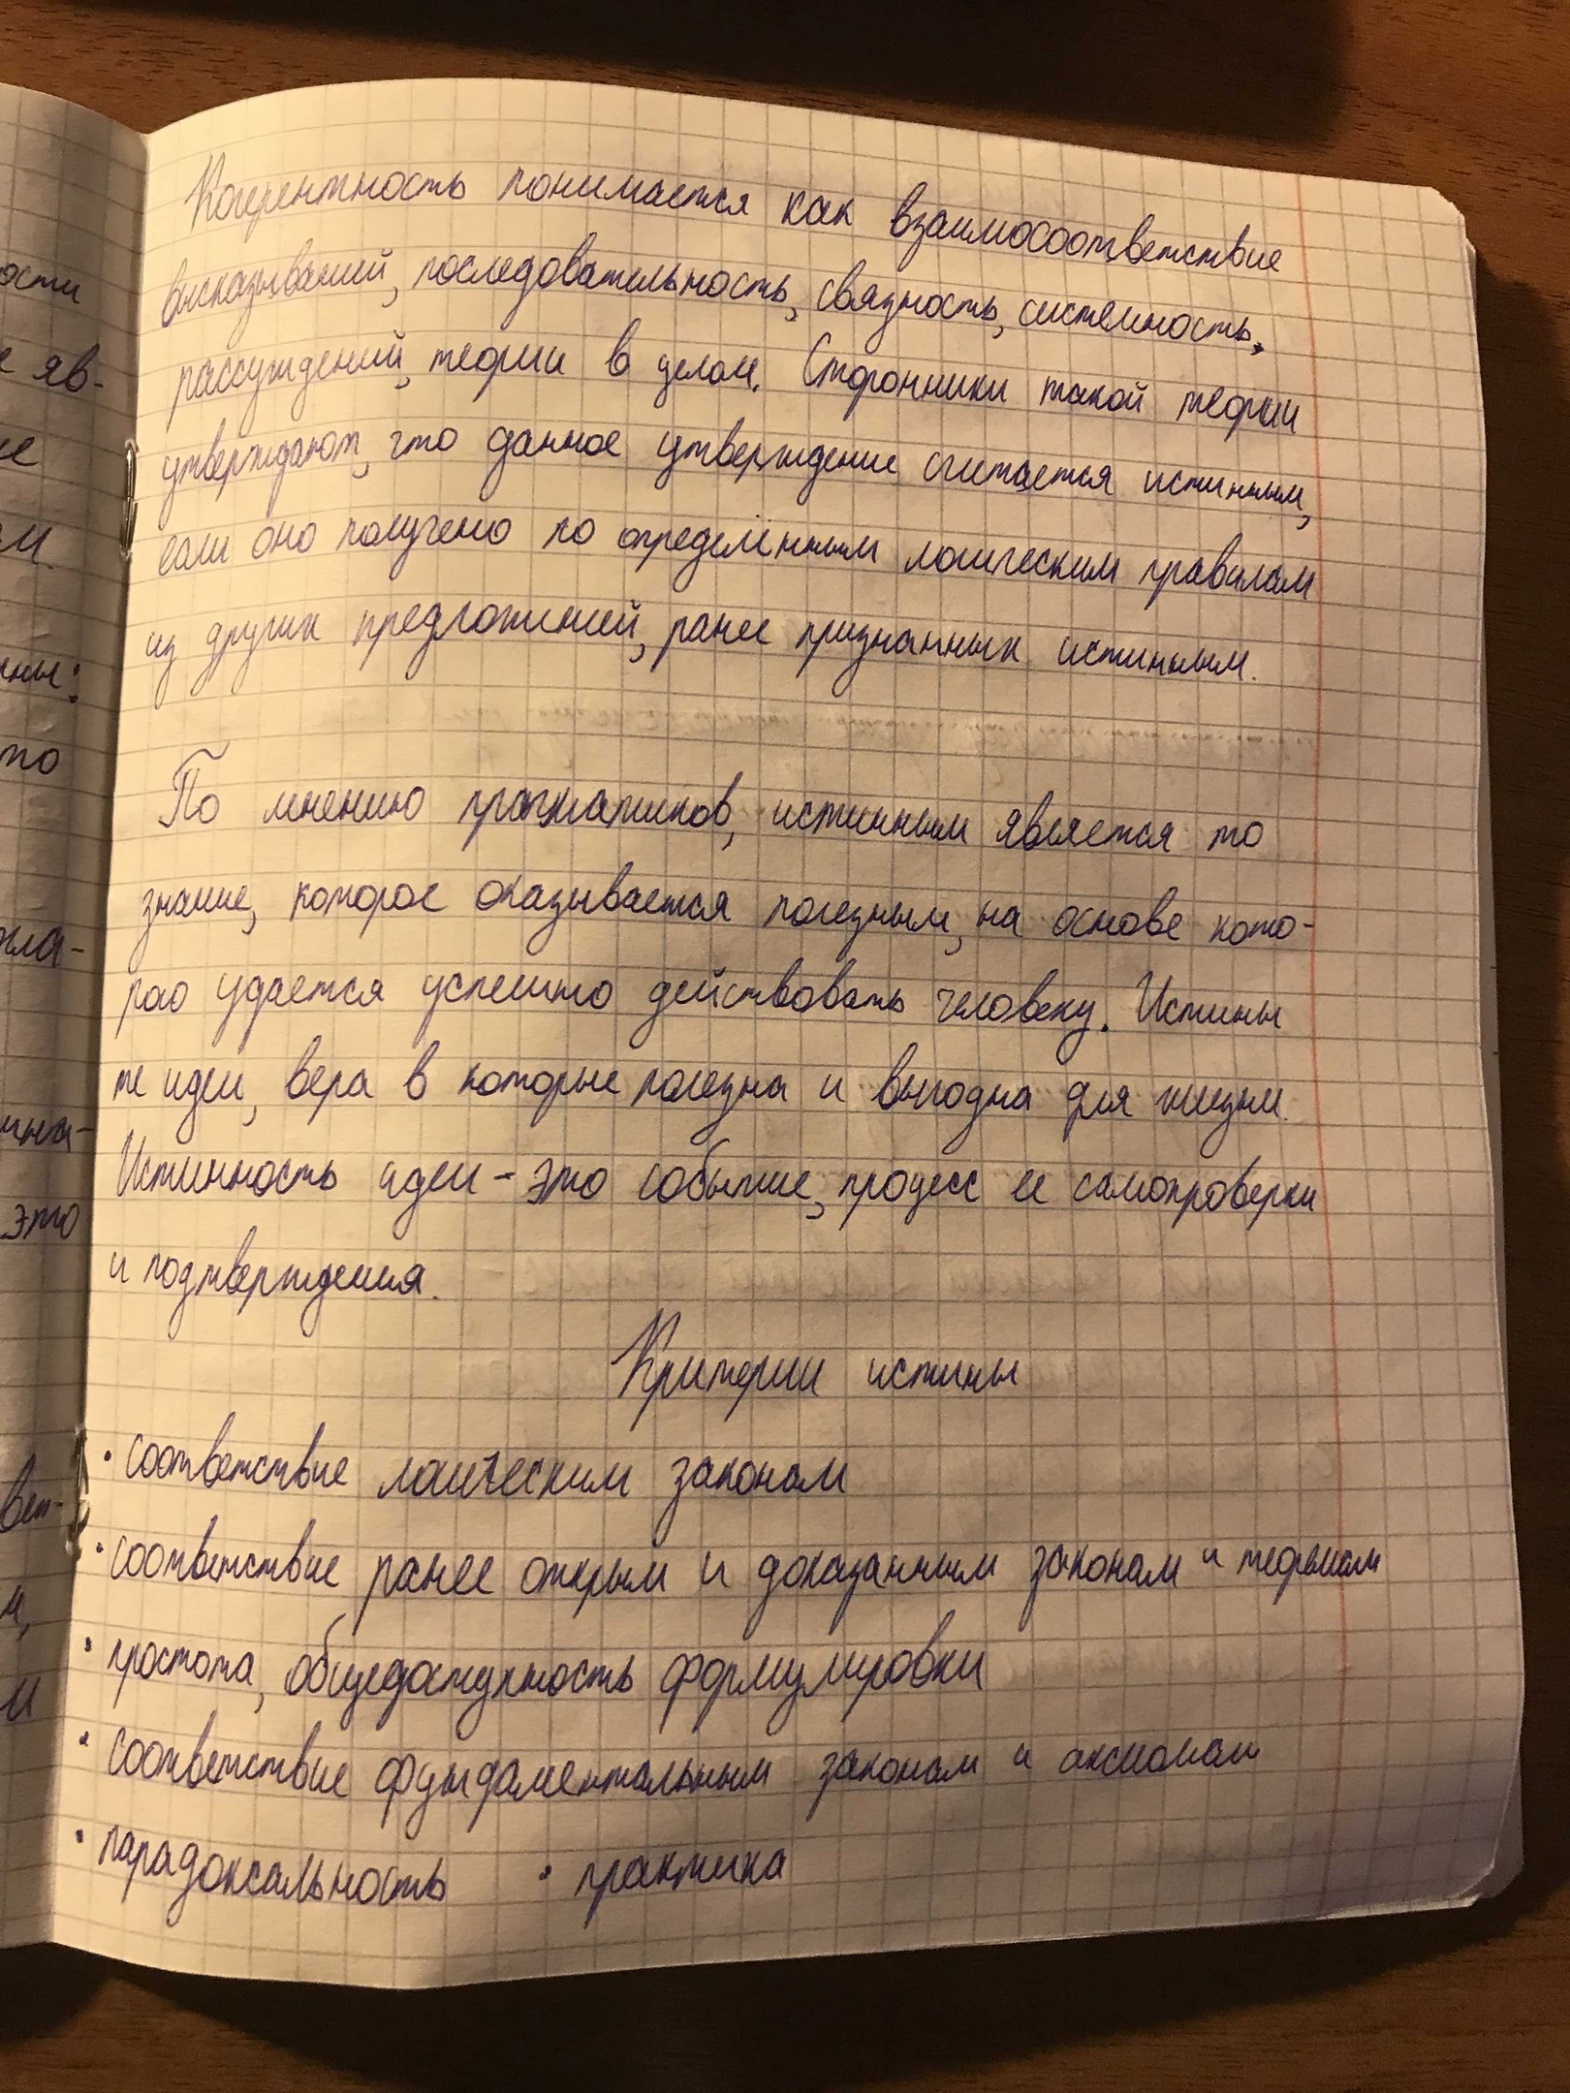 Когерентность понимается как взаимосоответствие
высказываний, последовательность, связность, системность,
рассуждений, теории в целом. Сторонники такой теории
утверждают, что данное утверждение считается истинным,
если оно получено по определённым логическим правилам
из других предложений, ранее признанных истинным.
По мнению прагматиков, истинным является то
знание, которое оказывается полезным, на основе кото-
рао удается успешно действовать человеку. Истины
те идеи, вера в которые полезна и выгодна для жизни.
Истинность идеи - это событие, процесс ее самопроверки
и подтверждения.
Критерии истины
• соответствие логическим законам
• соответствие ранее открым и доказанным законам и теоремам
• простота, общедоступность формулировки
• соответствие фундаментальным законам и аксиомам
• парадоксальность • практика
ости
е яв-
ны:
то
это
вет-